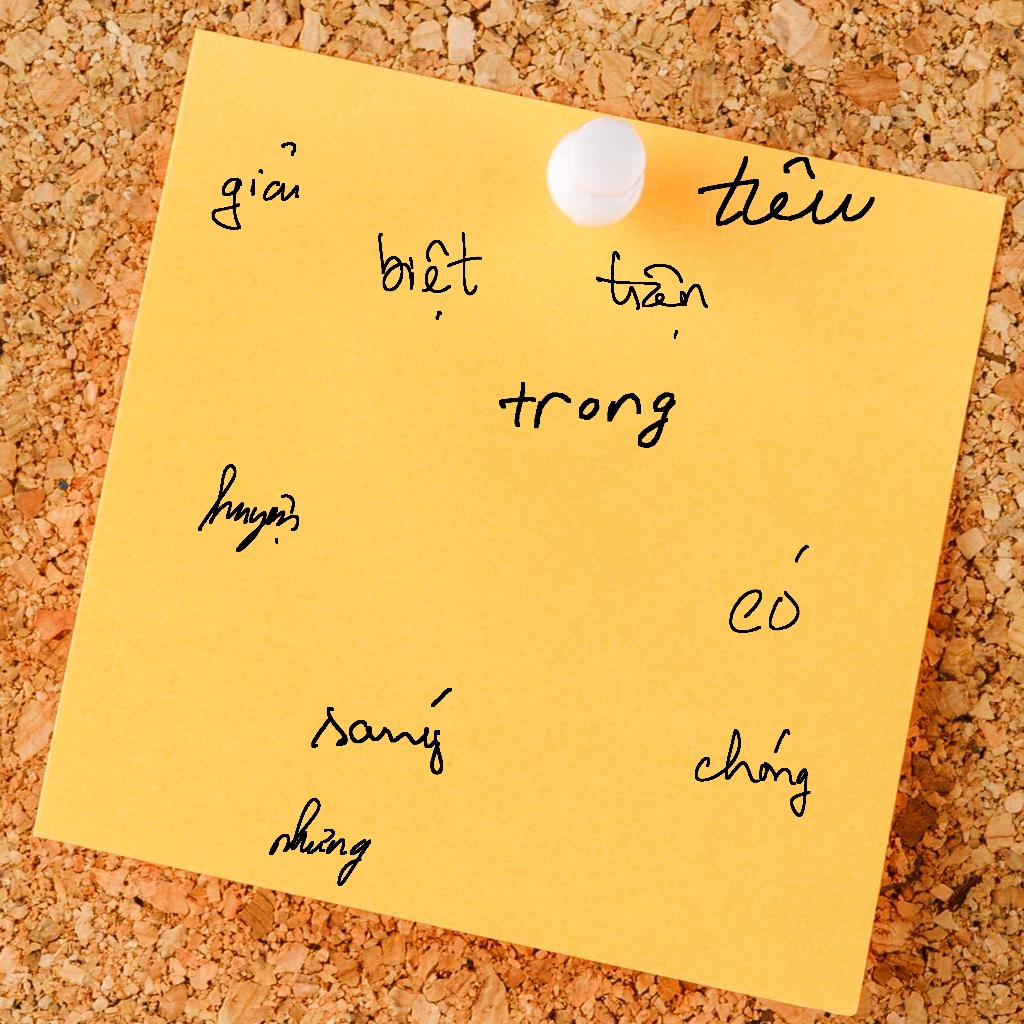 giải tiêu
biệt trận
trong
huyện
có
sáng
chóng
nhưng